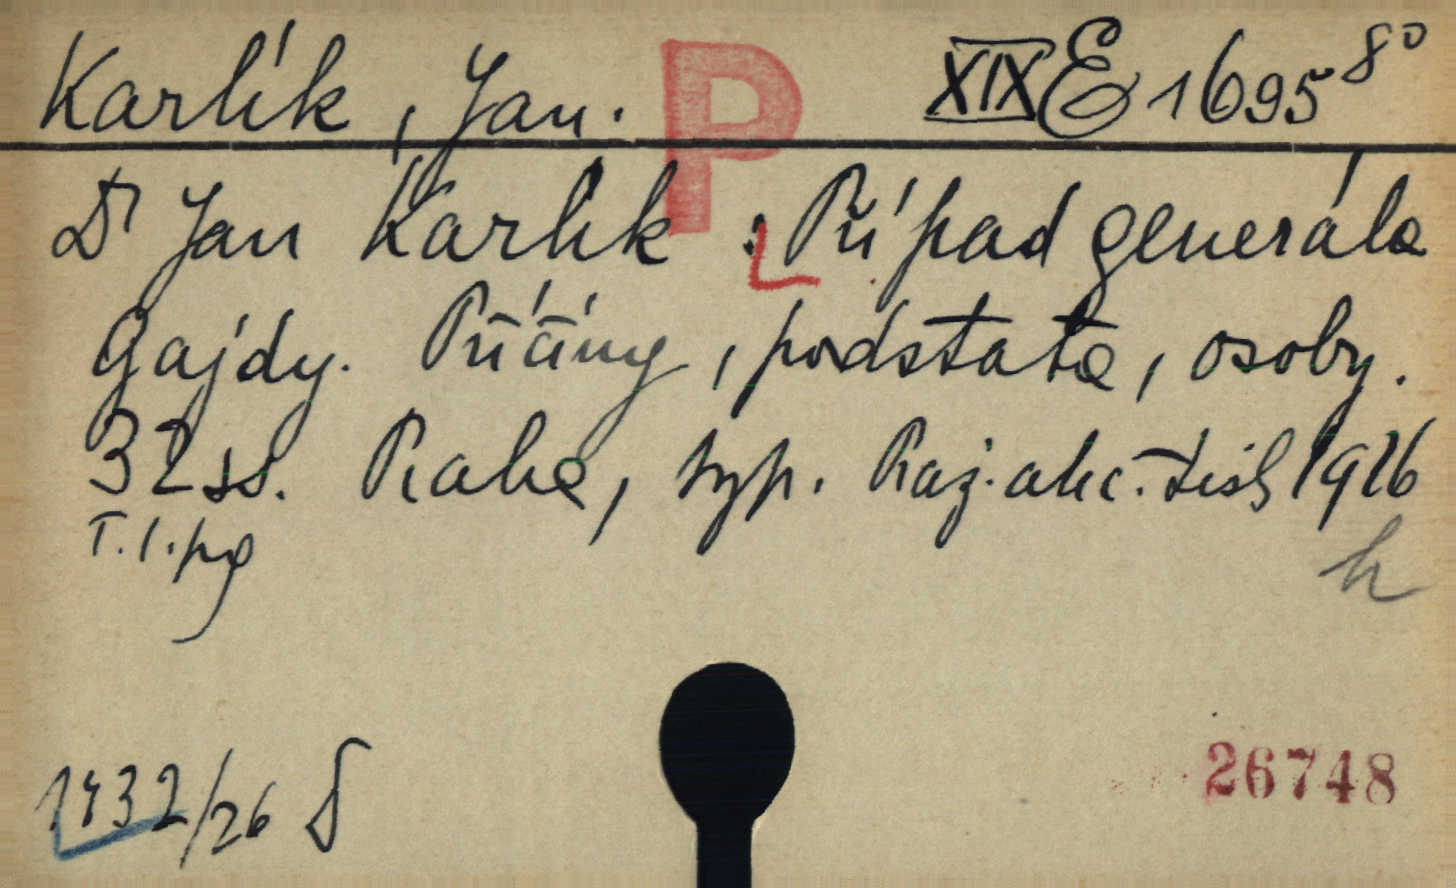 Karlík, Jan. P XIX E 1695 8°
Dr Jan Karlík : Případ generála
Gajdy. Příčiny, podstata, osoby.
32 ss. Praha, typ. Praž. akc. tisk 1926
T. 1. pg
h
1432/26 δ
26748